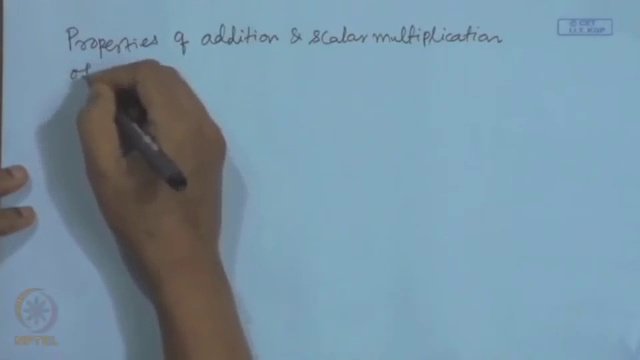 Properties of addition & scalar multiplication
of
© CET
I.I.T. KGP
NPTEL